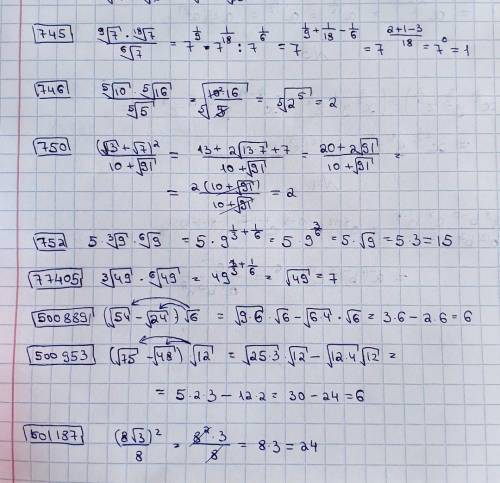 745 ⁹√7 · ¹⁸√7 / ⁶√7 = 7^(1/9) · 7^(1/18) : 7^(1/6) = 7^(1/9 + 1/18 − 1/6) = 7^((2+1−3)/18) = 7⁰ = 1
746 ⁵√10 · ⁵√16 / ⁵√5 = ⁵√(10² · 16 / 5) = ⁵√2⁵ = 2
750 (√13 + √7)² / (10 + √91) = (13 + 2√(13·7) + 7) / (10 + √91) = (20 + 2√91) / (10 + √91) =
= 2(10 + √91) / (10 + √91) = 2
752 5 · ³√9 · ⁶√9 = 5 · 9^(1/3 + 1/6) = 5 · 9^(3/6) = 5 · √9 = 5·3 = 15
77405 ³√49 · ⁶√49 = 49^(1/3 + 1/6) = √49 = 7
500889 (√54 − √24)√6 = √(9·6) · √6 − √(6·4) · √6 = 3·6 − 2·6 = 6
500953 (√75 − √48)√12 = √(25·3) · √12 − √(12·4) √12 =
= 5·2·3 − 12·2 = 30 − 24 = 6
501187 (8√3)² / 8 = 8² · 3 / 8 = 8·3 = 24